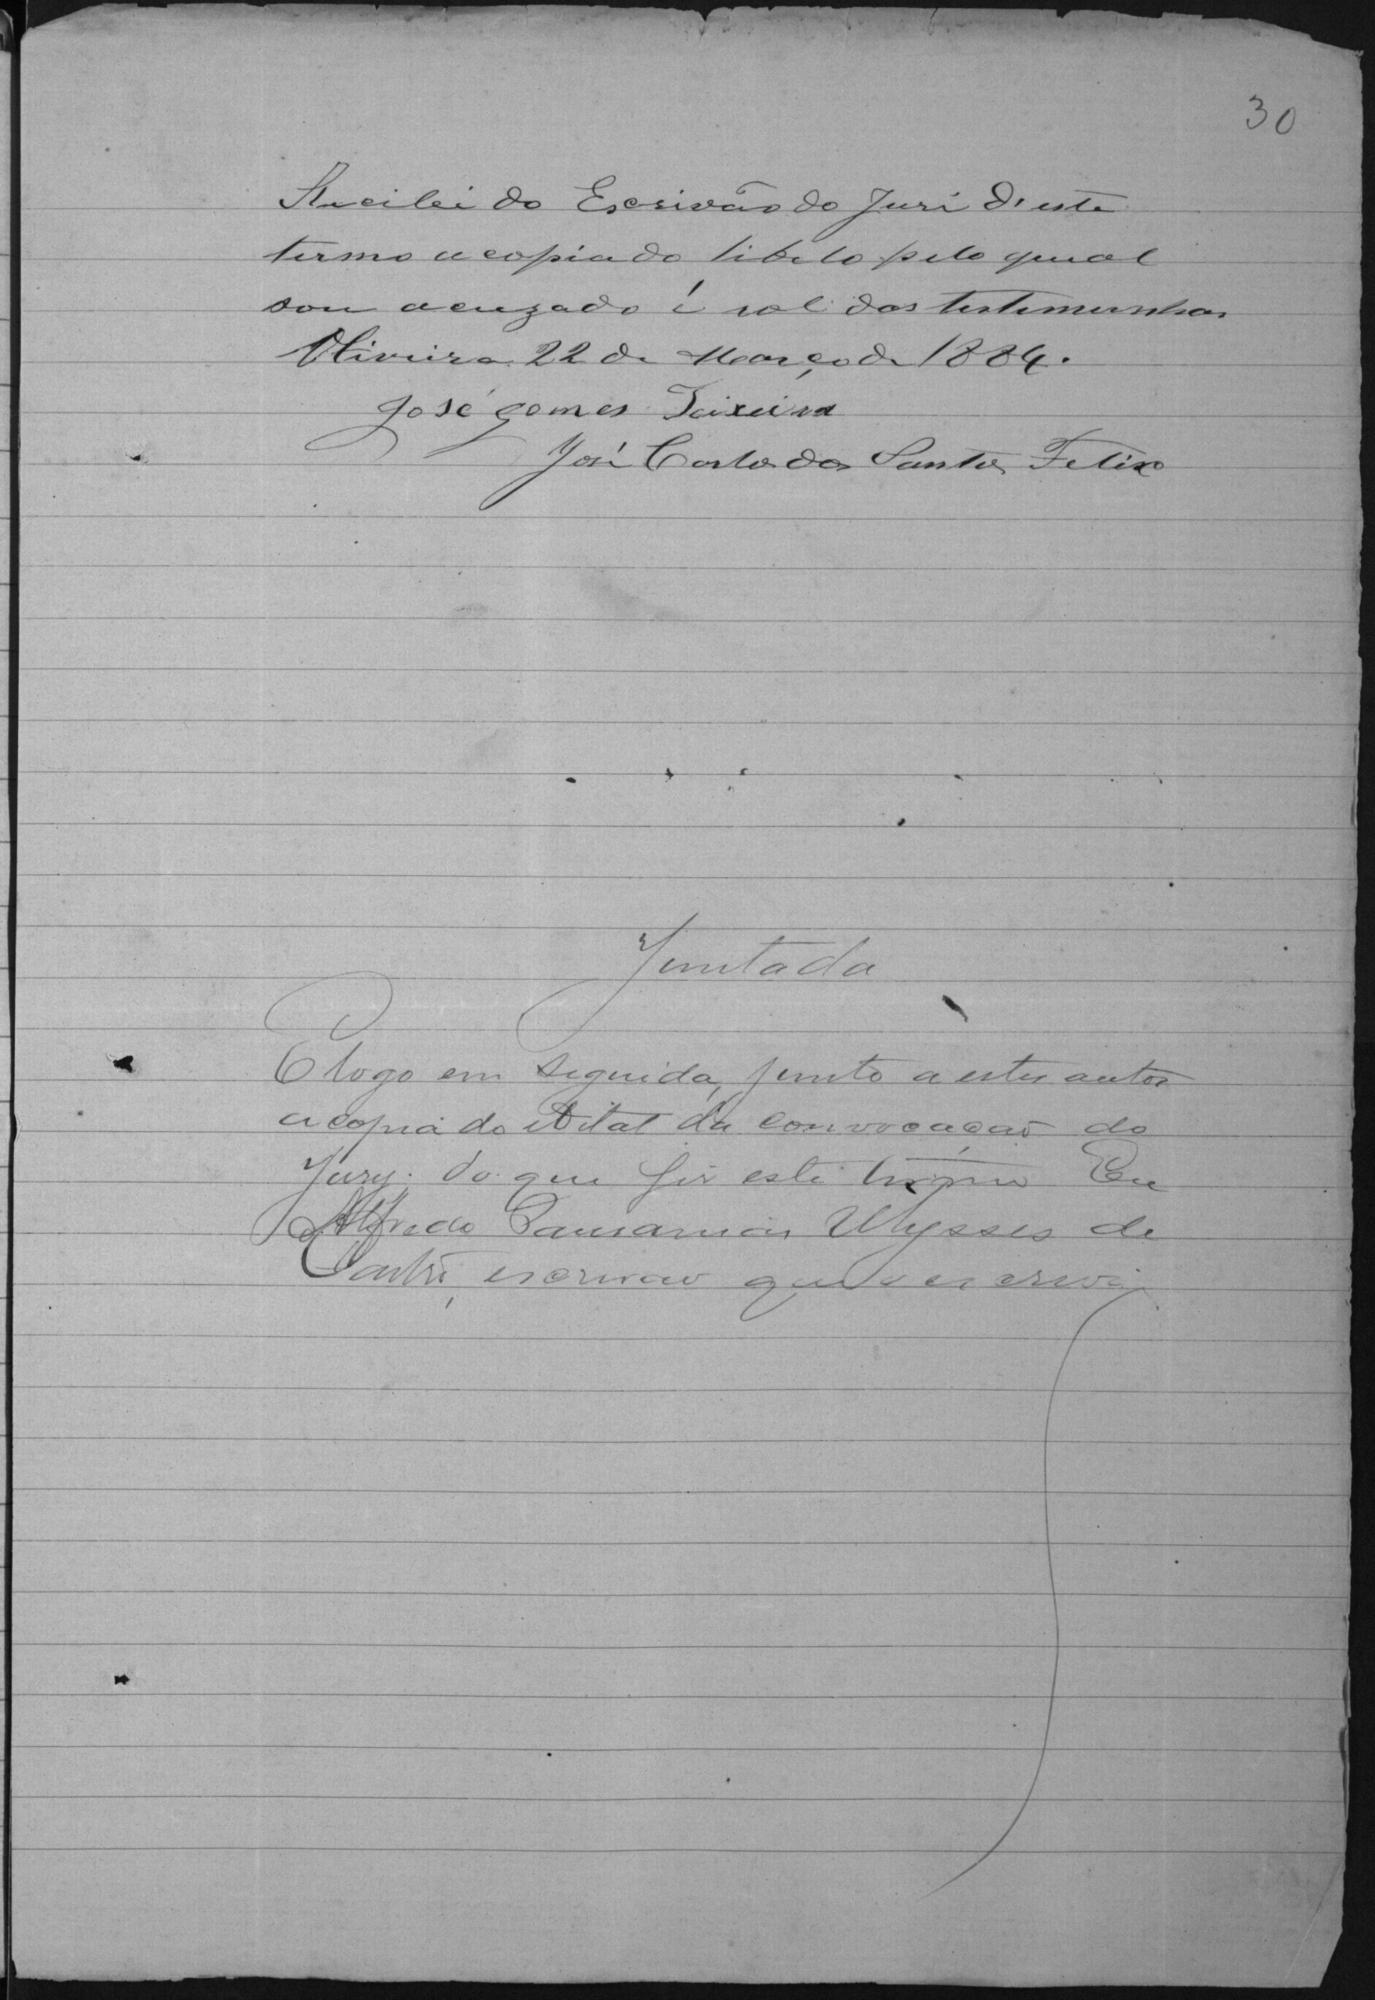 30
Recebi do Escrivão do Juri d'este
termo a copia do libelo pelo qual
sou acuzado é rol das testemunhas
Oliveira 22 de Março de 1884.
José Gomes Teixeira
José Carlos dos Santos Felix
Juntada
E logo em seguida, junto a estes autos
a copia do edital da convocação do
Jury. do que fiz este termo Eu
Alfredo Pausanias Ulysses de
Castro, escrivão que o escrevi